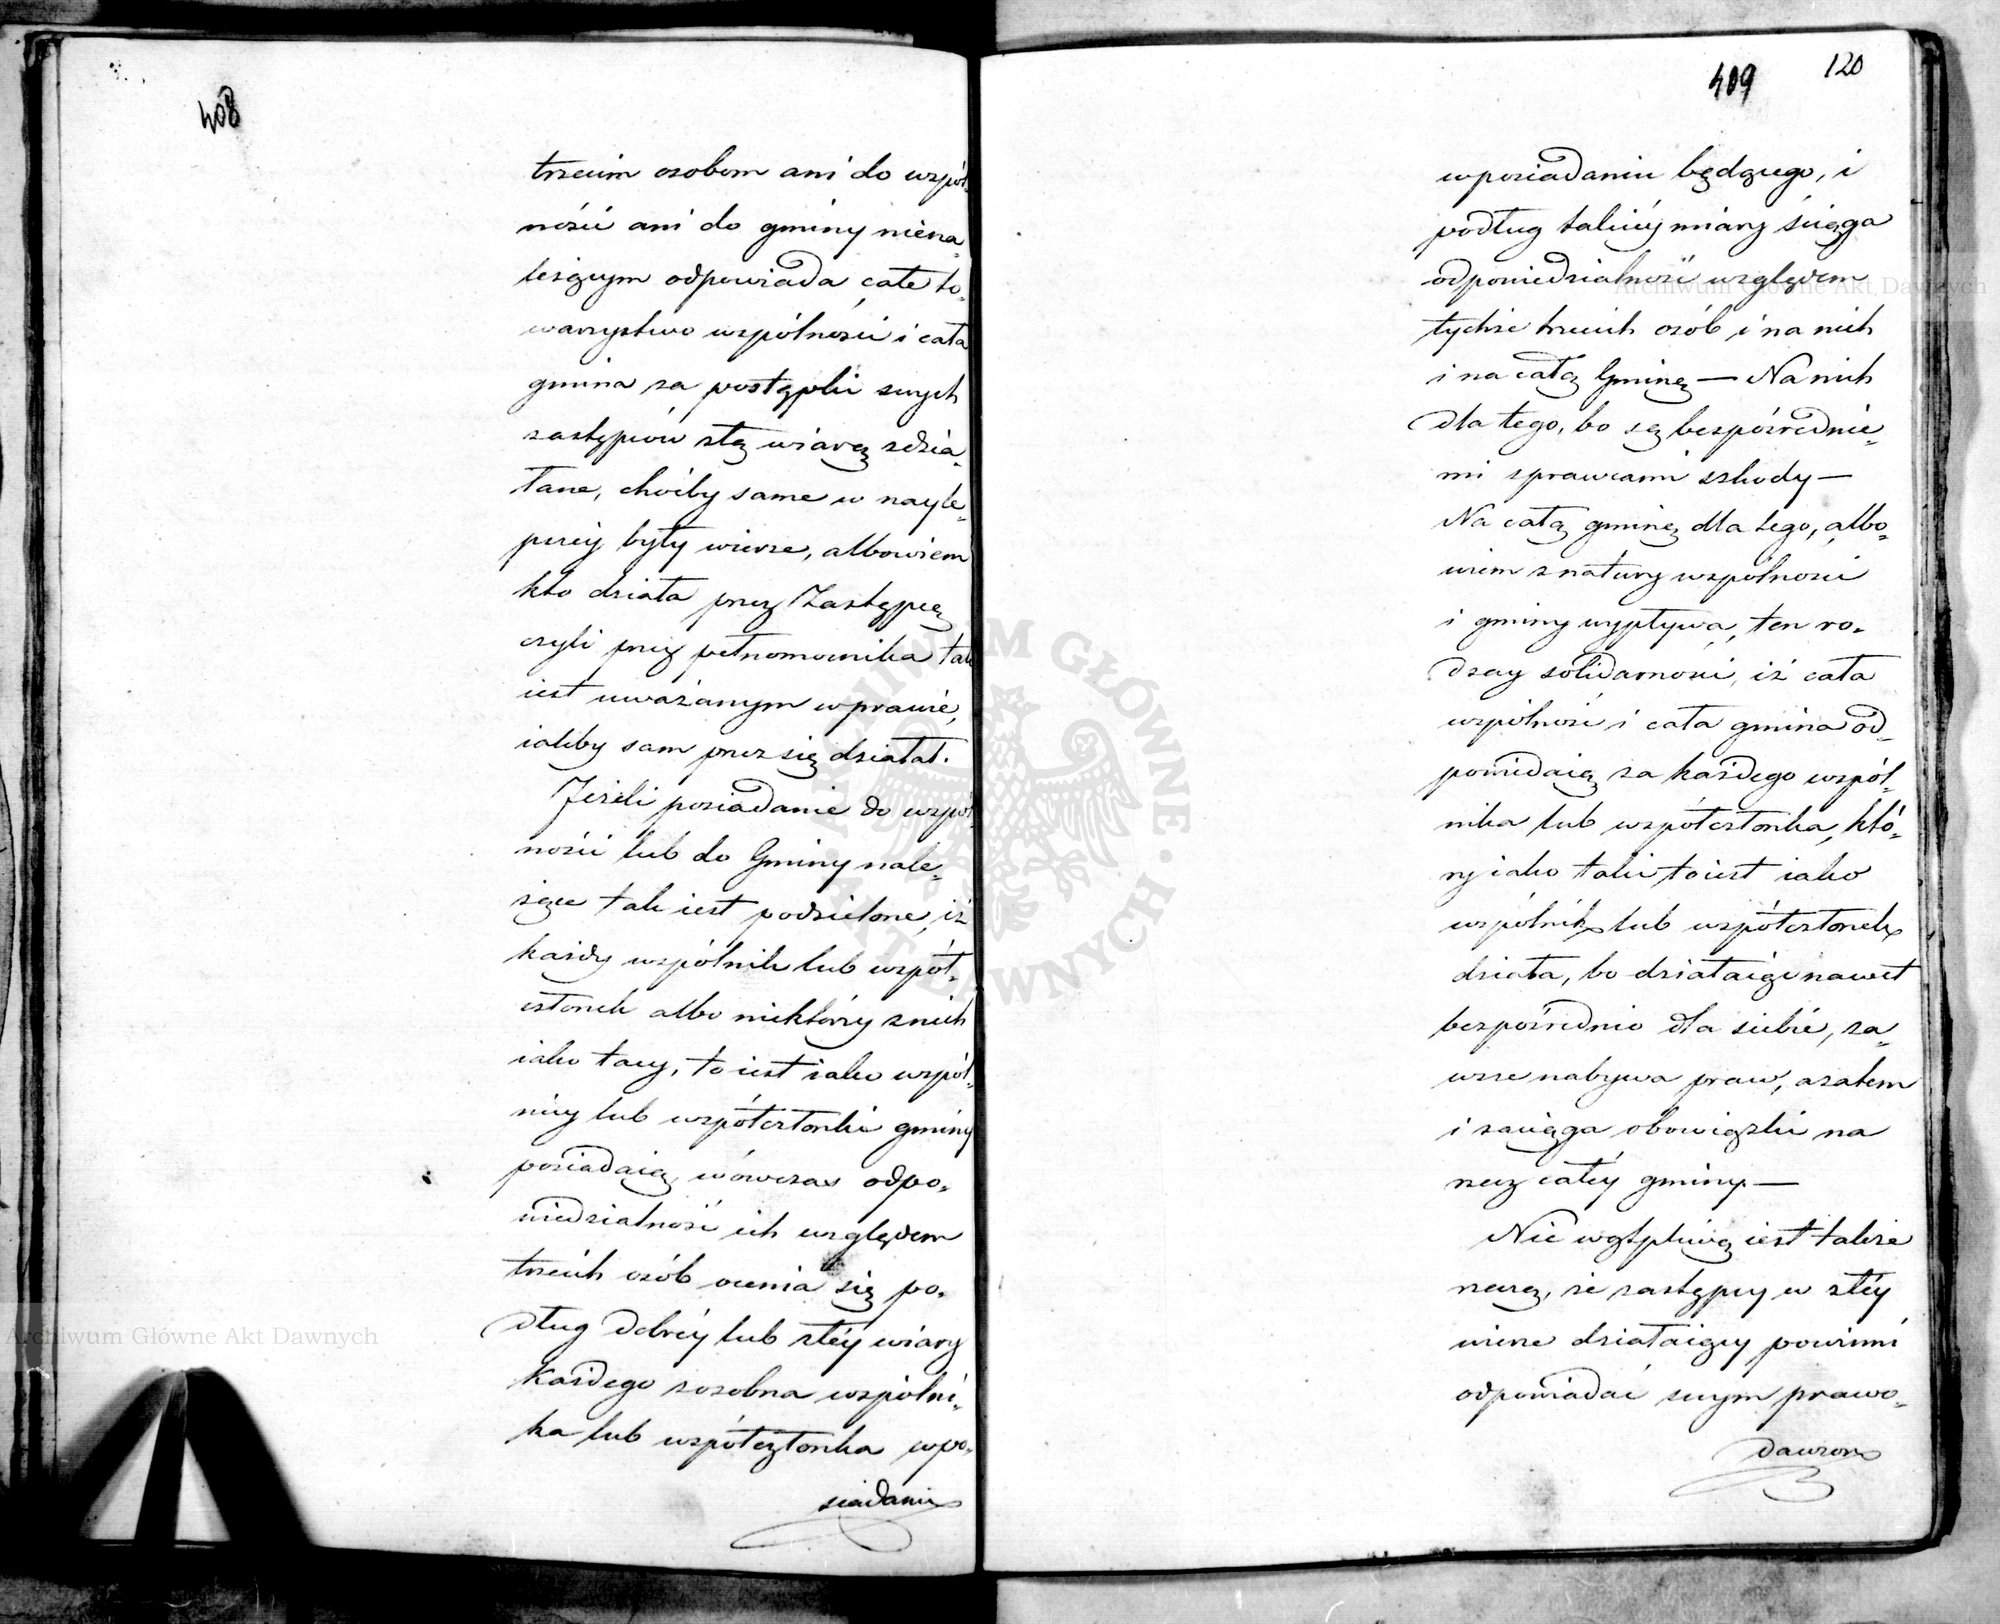 408
trzecim osobom ani do wspól-
ności ani do gminy niena-
leżącym odpowiada całe to-
warzystwo wspólności i cała
gmina za postępki swych
zastępców złą wiarą zdzia-
łane, choćby same w nayle-
pszéy były wierze, albowiem
kto działa przez Zastępcę
czyli przez pełnomocnika tak
iest uważanym w prawie,
iakby sam przez się działał.
Jeżeli posiadanie do wspól-
ności lub do Gminy nale-
żące tak iest podzielone, iż
każdy wspólnik lub współ-
członek albo niektórzy z nich
iako tacy, to iest iako wspól-
nicy lub współczłonki gminy
posiadaią, wówczas odpo-
wiedzialność ich względem
trzecich osób ocenia się po-
dług dobréy lub złéy wiary
każdego zosobna wspólni-
ka lub współczłonka w po-
siadaniu
409 120
w posiadaniu będącego, i
podług takiéy miary ściąga
odpowiedzialność względem
tychże trzecich osób i na nich
i na całą Gminę — Na nich
dla tego, bo są bezpośrednie-
mi sprawcami szkody —
Na całą gminę dla tego, albo-
wiem z natury wspólności
i gminy wypływa, ten ro-
dzay solidarności, iż cała
wspólność i cała gmina od-
powiedaią za każdego wspól-
nika lub współczłonka, któ-
ry iako taki to iest iako
wspólnik lub współczłonek
działa, bo działaiąc nawet
bezpośrednio dla siebie, za-
wsze nabywa praw, a zatem
i zaciąga obowiązki na
rzecz całéy gminy —
Nie wątpliwą iest także
rzeczą, że zastępcy w złéy
wierze działaiący powinni
odpowiadać swym prawo-
dawcom
Archiwum Główne Akt Dawnych
Archiwum Główne Akt Dawnych
ARCHIWUM GŁÓWNE AKT DAWNYCH